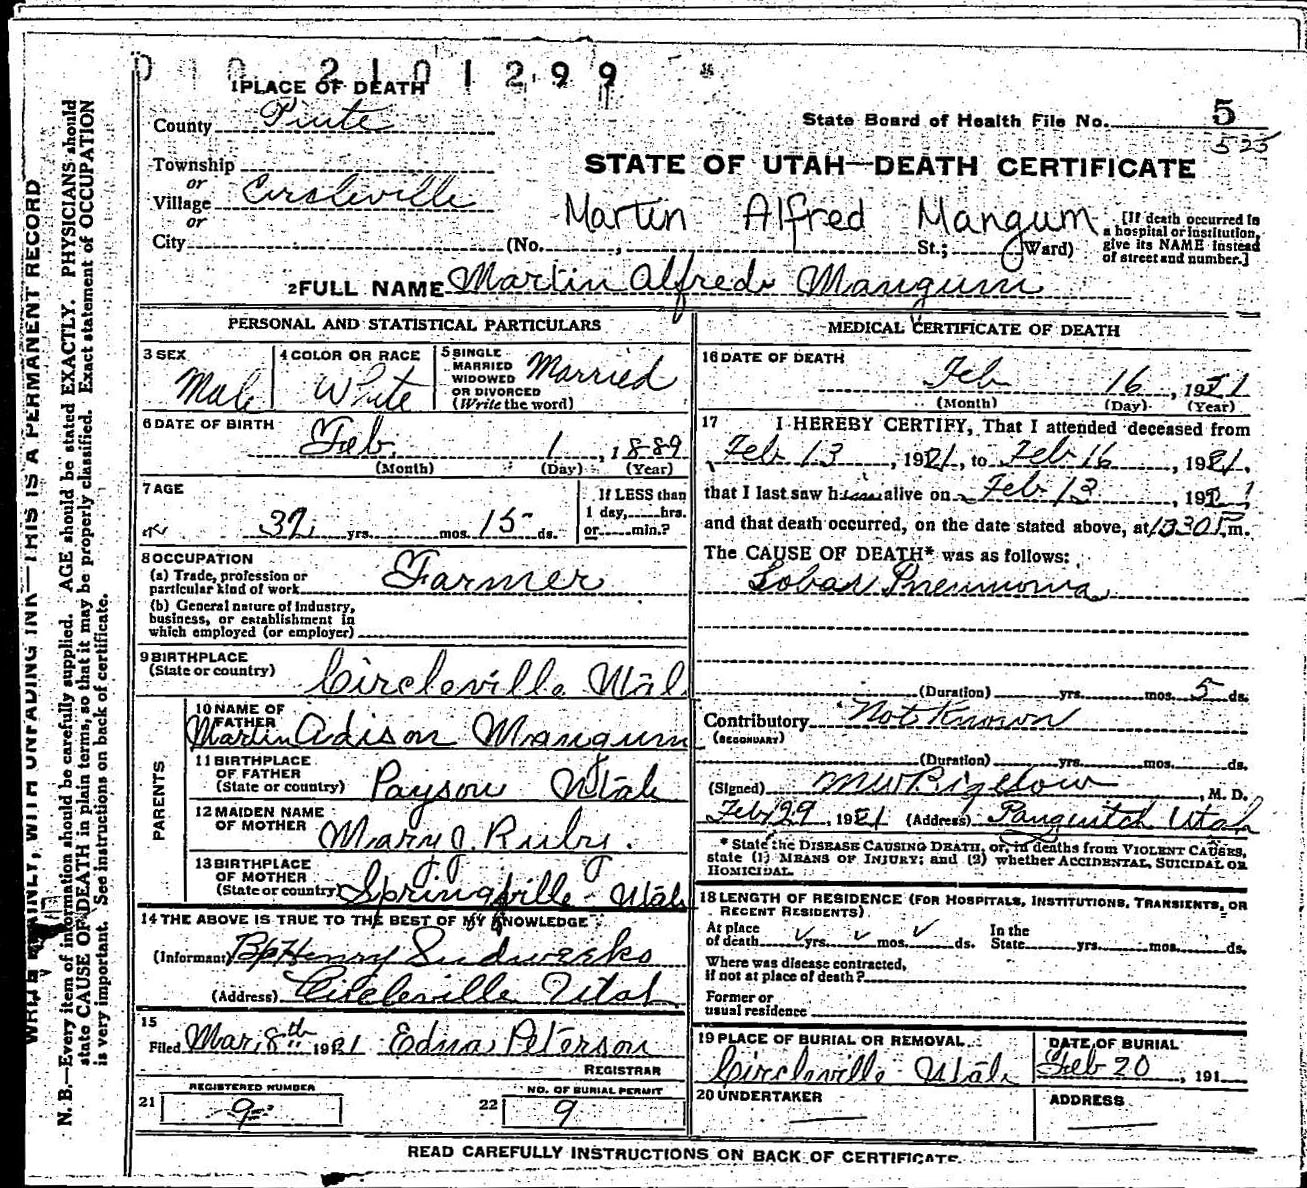 D 10 2101299
1 PLACE OF DEATH
County Piute
State Board of Health File No. 5
525
Township
or
Village Circleville
or
City (No. , St.; Ward)
STATE OF UTAH—DEATH CERTIFICATE
Martin Alfred Mangum
[If death occurred in a hospital or institution, give its NAME instead of street and number.]
2 FULL NAME Martin Alfred Mangum
PERSONAL AND STATISTICAL PARTICULARS
3 SEX Male
4 COLOR OR RACE White
5 SINGLE MARRIED WIDOWED OR DIVORCED (Write the word) Married
6 DATE OF BIRTH Feb. 1, 1889
(Month) (Day) (Year)
7 AGE
32 yrs. mos. 15 ds.
If LESS than 1 day, hrs. or min.?
8 OCCUPATION
(a) Trade, profession or particular kind of work Farmer
(b) General nature of Industry, business, or establishment in which employed (or employer)
9 BIRTHPLACE (State or country) Circleville Utah
PARENTS
10 NAME OF FATHER Martin Adison Mangum
11 BIRTHPLACE OF FATHER (State or country) Payson Utah
12 MAIDEN NAME OF MOTHER Mary J. Ruby.
13 BIRTHPLACE OF MOTHER (State or country) Springville Utah
14 THE ABOVE IS TRUE TO THE BEST OF MY KNOWLEDGE
(Informant) Bp Henry Sudweeks
(Address) Circleville Utah
15
Filed Mar. 8th 1921 Edna Peterson
REGISTRAR
21 REGISTERED NUMBER 9
22 NO. OF BURIAL PERMIT 9
MEDICAL CERTIFICATE OF DEATH
16 DATE OF DEATH
Feb 16, 1921
(Month) (Day) (Year)
17 I HEREBY CERTIFY, That I attended deceased from
Feb 13, 1921, to Feb 16, 1921,
that I last saw him alive on Feb 13, 1921
and that death occurred, on the date stated above, at 10 30 P. m.
The CAUSE OF DEATH* was as follows:
Lobar Pneumonia
(Duration) yrs. mos. 5 ds.
Contributory Not Known
(SECONDARY)
(Duration) yrs. mos. ds.
(Signed) M W Bigelow, M. D.
Feb 29, 1921 (Address) Panguitch Utah
* State the DISEASE CAUSING DEATH, or, in deaths from VIOLENT CAUSES, state (1) MEANS OF INJURY; and (2) whether ACCIDENTAL, SUICIDAL OR HOMICIDAL.
18 LENGTH OF RESIDENCE (FOR HOSPITALS, INSTITUTIONS, TRANSIENTS, OR RECENT RESIDENTS)
At place of death yrs. mos. ds. In the State yrs. mos. ds.
Where was disease contracted, if not at place of death?
Former or usual residence
19 PLACE OF BURIAL OR REMOVAL Circleville Utah
DATE OF BURIAL Feb 20, 191
20 UNDERTAKER
ADDRESS
READ CAREFULLY INSTRUCTIONS ON BACK OF CERTIFICATE.
WRITE PLAINLY, WITH UNFADING INK—THIS IS A PERMANENT RECORD
N. B.—Every item of information should be carefully supplied. AGE should be stated EXACTLY. PHYSICIANS should
state CAUSE OF DEATH in plain terms, so that it may be properly classified. Exact statement of OCCUPATION
is very important. See instructions on back of certificate.